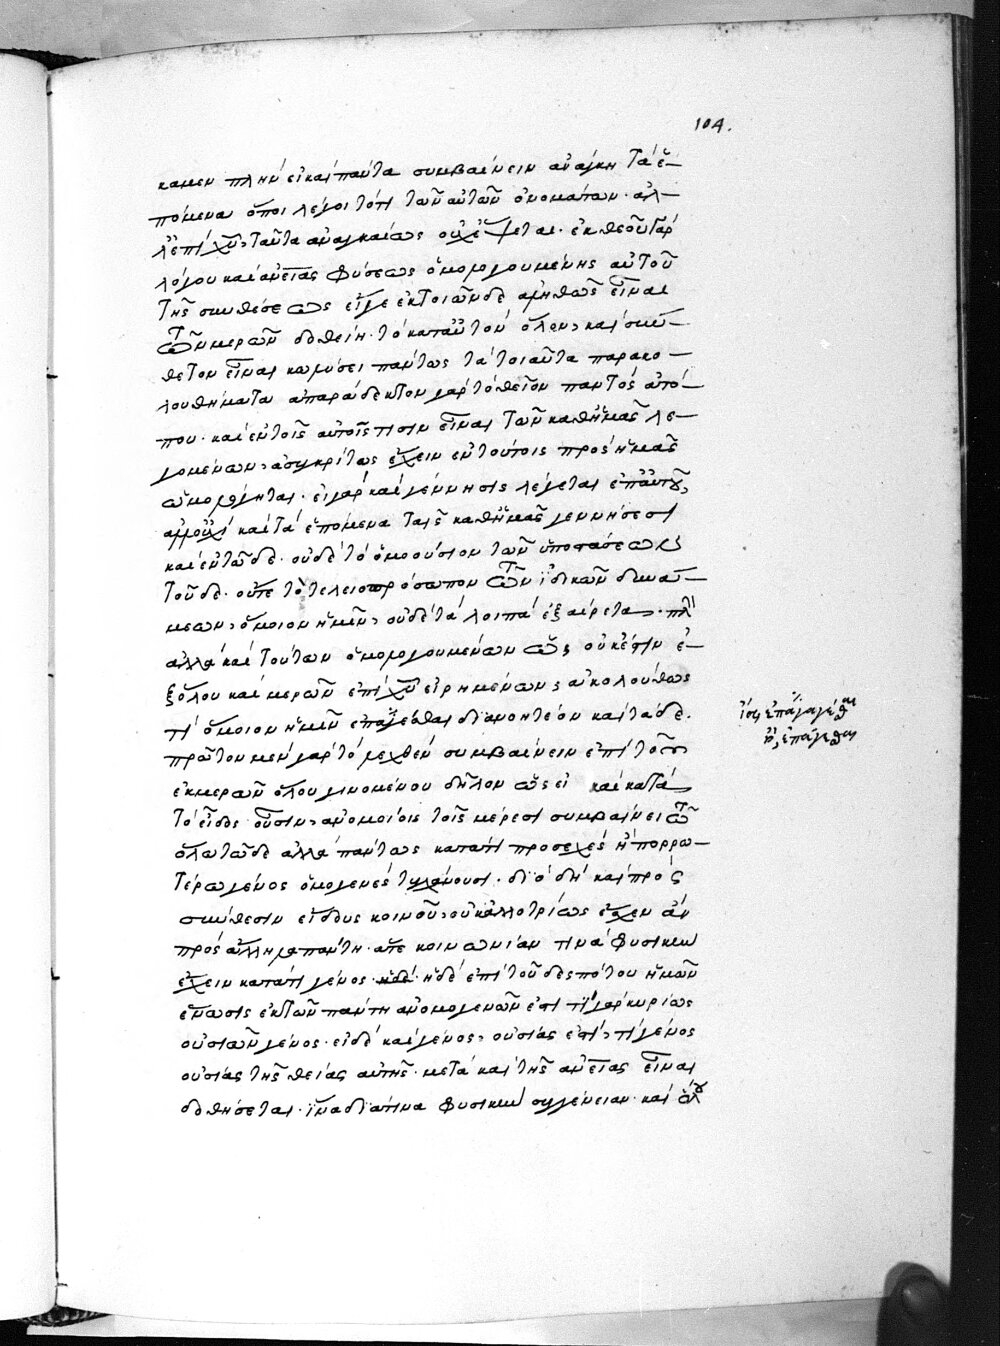 104.
καμεν πλην εἰ καὶ πάντα συμβαίνειν ἀνάγκη τὰ ἑ-
πόμενα ὅποι λέγοιτό τι τῶν αὐτῶν ὀνομάτων· ἀλ-
λ' ἐπὶ χυ, ταῦτα ἀναγκαίως οὐχ ἕψεται· ἐκ θεοῦ γὰρ
λόγου καὶ ἀνίας φύσεως ὁμολογουμένης αὐτοῦ
τῆς συνθέσεως εἴγε ἐκ τοιῶνδε ἀληθῶς εἶναι
τῶν μερῶν δοθείη· τὸ κατ' αὐτὸν ὅλον, καὶ σύν-
θετον εἶναι κωλύσει πάντως τὰ τοιαῦτα παρακο-
λουθήματα ἀπαράδεκτον γὰρ τὸ θεῖον παντὸς ἀτό-
που· καὶ ἐν τοῖς αὐτοῖς τισιν εἶναι τῶν καθ' ἡμᾶς λε-
γομένων, ἀσυγκρίτως ἔχειν ἐν τούτοις πρὸς ἡμᾶς
ὡμολόγηται· εἰ γὰρ καὶ γέννησις λέγεται ἐπ' αὐτοῦ,
ἀλλ' οὐχὶ καὶ τὰ ἑπόμενα ταῖς καθ' ἡμᾶς γεννήσεσι
καὶ ἐν τῶδε· οὐδὲ τὸ ὁμοούσιον τῶν ὑποστάσεων
τοῦδε· οὔτε τὸ τελειοπρόσωπον τῶν ἰδικῶν δυνά-
μεων, ὅμοιον ἡμῖν, οὐδὲ τὰ λοιπὰ ἐξαίρετα·
ἀλλὰ καὶ τούτων ὁμολογουμένων ὡς οὐκ ἔστιν ἐ-
ξ ὅλου καὶ μερῶν ἐπὶ χυ εἰρημένων, ἀκολούθως
τί ὅμοιον ἡμῖν ἐπάγεσθαι διανοητέον καὶ τάδε·
πρῶτον μὲν γὰρ τὸ λεχθὲν συμβαίνειν ἐπὶ τοῦ
ἐκ μερῶν ὅλου γινομένου δῆλον ὡς εἰ καὶ κατὰ
τὸ εἶδος οὖσιν, ἀνομοίοις τοῖς μέρεσι συμβαίνει τῶ
ὅλω τῶδε ἀλλὰ πάντως κατά τι προσεχὲς ἢ πορρω-
τέρω γένος ὁμογενὲς τυγχάνουσι· διὸ δὴ καὶ πρὸς
σύνθεσιν εἴδους κοινοῦ, οὐκ ἀλλοτρίως ἔχειν ἂν
πρὸς ἄλληλα πάντη· ἅτε κοινωνίαν τινὰ φυσικὴν
ἔχειν κατά τι γένος· ἡδὲ· ἡ δὲ ἐπὶ τοῦ δεσπότου ἡμῶν
ἕνωσις ἐκ τῶν πάντη ἀνομογενῶν ἐστι τί γὰρ κυρίως
οὐσιῶν γένος· εἰ δὲ καὶ γένος, οὐσίας ἐστί, τί γένος
οὐσίας τῆς θείας αὐτῆς· μετὰ καὶ τῆς ἀνίας εἶναι
δοθήσεται· ἵνα διά τινα φυσικὴν συγγένειαν· καὶ
ἴσως ἐπαγαγέσθαι
ἢ, ἐπάγεσθαι